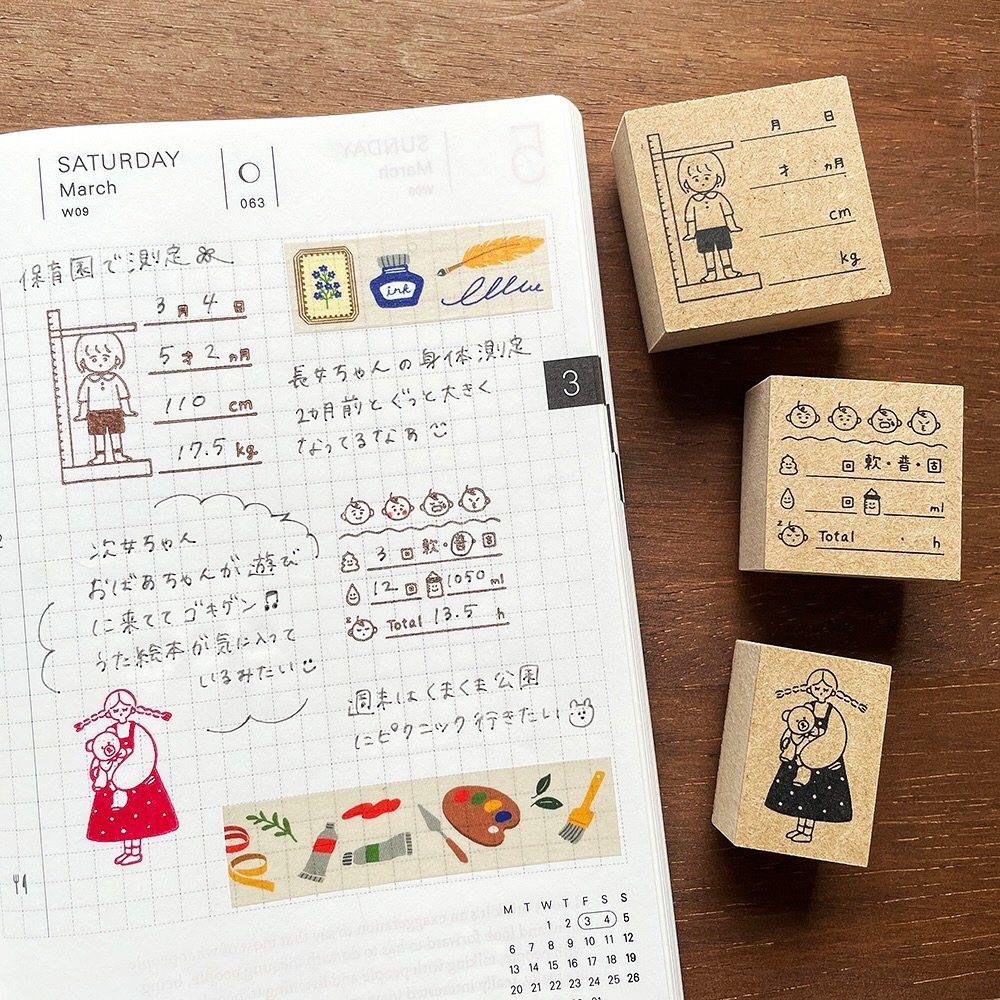 SATURDAY
March
W09
063
SUNDAY
March
W09
5
保育園で測定
3月 4日
5才 2ヵ月
110 cm
17.5 kg
ink
長女ちゃんの身体測定
2ヵ月前とぐっと大きく
なってるなぁ
3
次女ちゃん
おばあちゃんが遊び
に来ててゴキゲン♫
うた絵本が気に入って
いるみたい
3 回 軟・普・固
12 回 1050 ml
z Total 13.5 h
週末はくまくま公園
にピクニック行きたい
M T W T F S S
1 2 3 4 5
6 7 8 9 10 11 12
13 14 15 16 17 18 19
20 21 22 23 24 25 26
月 日
才 ヵ月
cm
kg
回 軟・普・固
回 ml
z Total . h